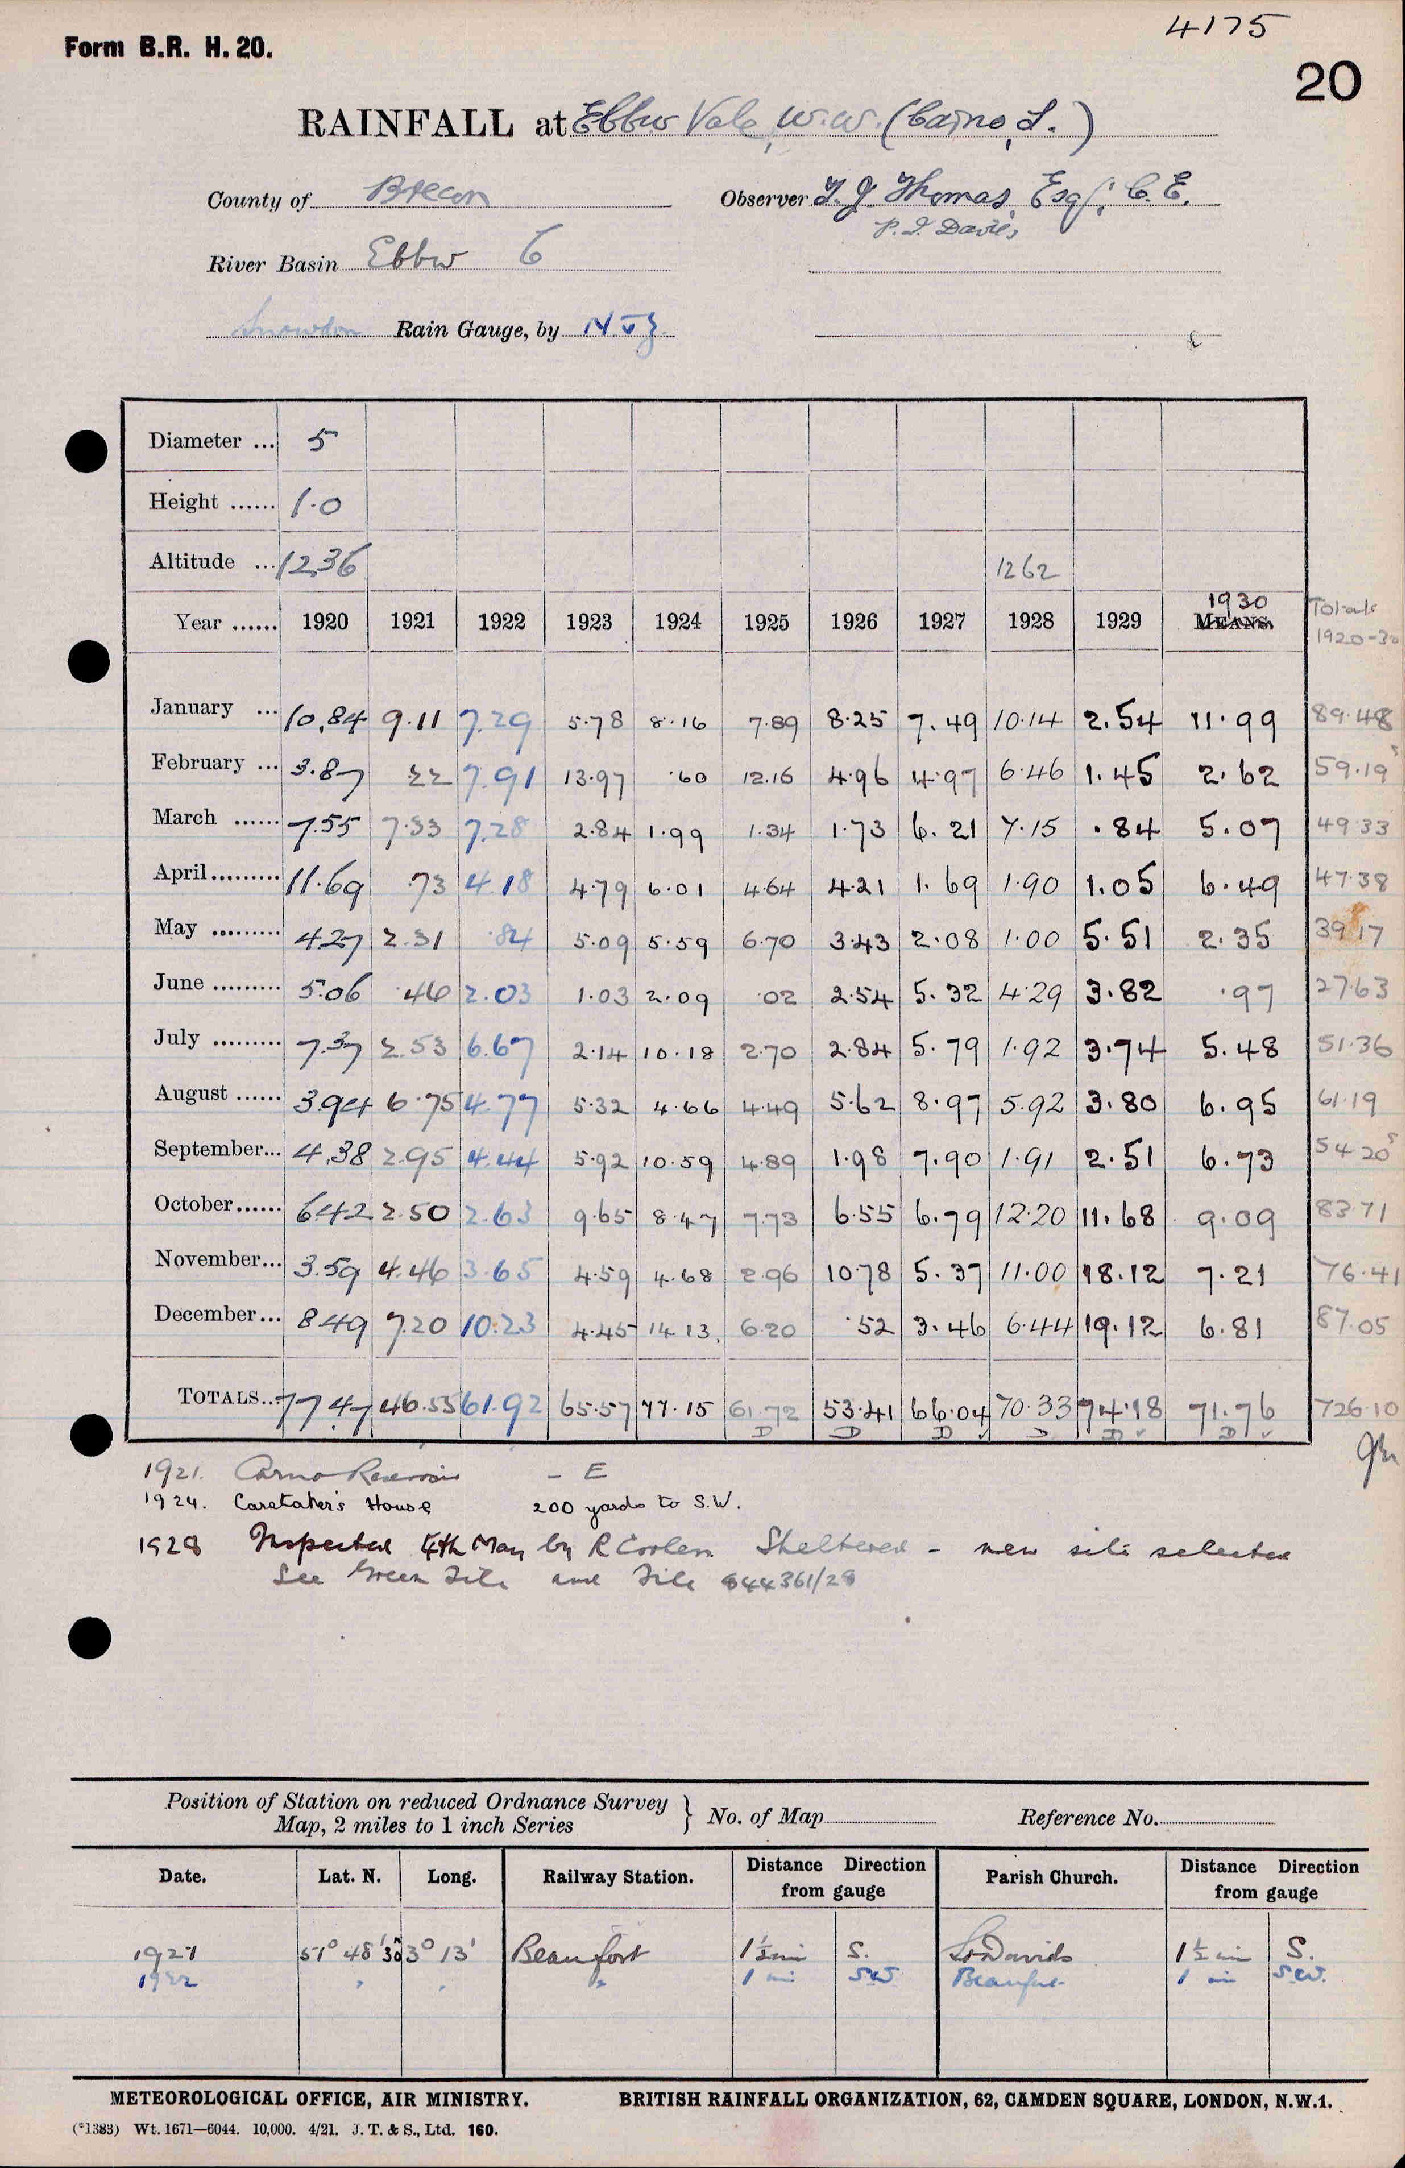 4175
Form B.R. H. 20.
20
RAINFALL at Ebbw Vale, W.W. (Carno, L.)
County of Brecon Observer T. J. Thomas, Esq., C.E.
P. I. Davies
River Basin Ebbw 6
Snowdon Rain Gauge, by N & Z
Diameter ... 5
Height ...... 1.0
Altitude ... 1236 1262
Year ...... 1920 1921 1922 1923 1924 1925 1926 1927 1928 1929 1930 MEANS. Totals 1920-30
January ... 10.84 9.11 7.29 5.78 8.16 7.89 8.25 7.49 10.14 2.54 11.99 89.48
February ... 3.87 .22 7.91 13.97 .60 12.16 4.96 4.97 6.46 1.45 2.62 59.19
March ...... 7.55 7.33 7.28 2.84 1.99 1.34 1.73 6.21 7.15 .84 5.07 49.33
April ......... 11.69 .73 4.18 4.79 6.01 4.64 4.21 1.69 1.90 1.05 6.49 47.38
May ......... 4.27 2.31 .84 5.09 5.59 6.70 3.43 2.08 1.00 5.51 2.35 39.17
June ......... 5.06 .46 2.03 1.03 2.09 .02 2.54 5.32 4.29 3.82 .97 27.63
July ......... 7.37 2.53 6.67 2.14 10.18 2.70 2.84 5.79 1.92 3.74 5.48 51.36
August ...... 3.94 6.75 4.77 5.32 4.66 4.49 5.62 8.97 5.92 3.80 6.95 61.19
September... 4.38 2.95 4.44 5.92 10.59 4.89 1.98 7.90 1.91 2.51 6.73 54.20
October...... 6.42 2.50 2.63 9.65 8.47 7.73 6.55 6.79 12.20 11.68 9.09 83.71
November... 3.59 4.46 3.65 4.59 4.68 2.96 10.78 5.37 11.00 18.12 7.21 76.41
December... 8.49 7.20 10.23 4.45 14.13 6.20 .52 3.46 6.44 19.12 6.81 87.05
TOTALS... 77.47 46.55 61.92 65.57 77.15 61.72 53.41 66.04 70.33 74.18 71.76 726.10
D D D D D D
1921. Carno Reservoir - E
1924. Caretaker's House 200 yards to S.W.
1928 Inspected 4th May by R Corless Sheltered - new site selected
See Green File and File 644361/28
Position of Station on reduced Ordnance Survey Map, 2 miles to 1 inch Series } No. of Map Reference No.
Date. Lat. N. Long. Railway Station. Distance Direction from gauge Parish Church. Distance Direction from gauge
1921 51° 48' 30" 3° 13' Beaufort 1 1/2 mi S. St Davids 1 1/2 mi S.
1922 " " " 1 mi SW Beaufort 1 mi S.W.
METEOROLOGICAL OFFICE, AIR MINISTRY. BRITISH RAINFALL ORGANIZATION, 62, CAMDEN SQUARE, LONDON, N.W.1.
(*1383) Wt. 1671—6044. 10,000. 4/21. J. T. & S., Ltd. 160.